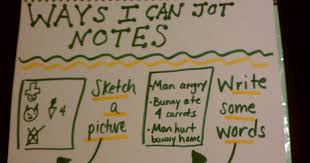 WAYS I CAN JOT
NOTES
4
Sketch
a
picture
- Man angry
- Bunny ate
4 carrots
- Man hurt
bunny home
Write
some
words